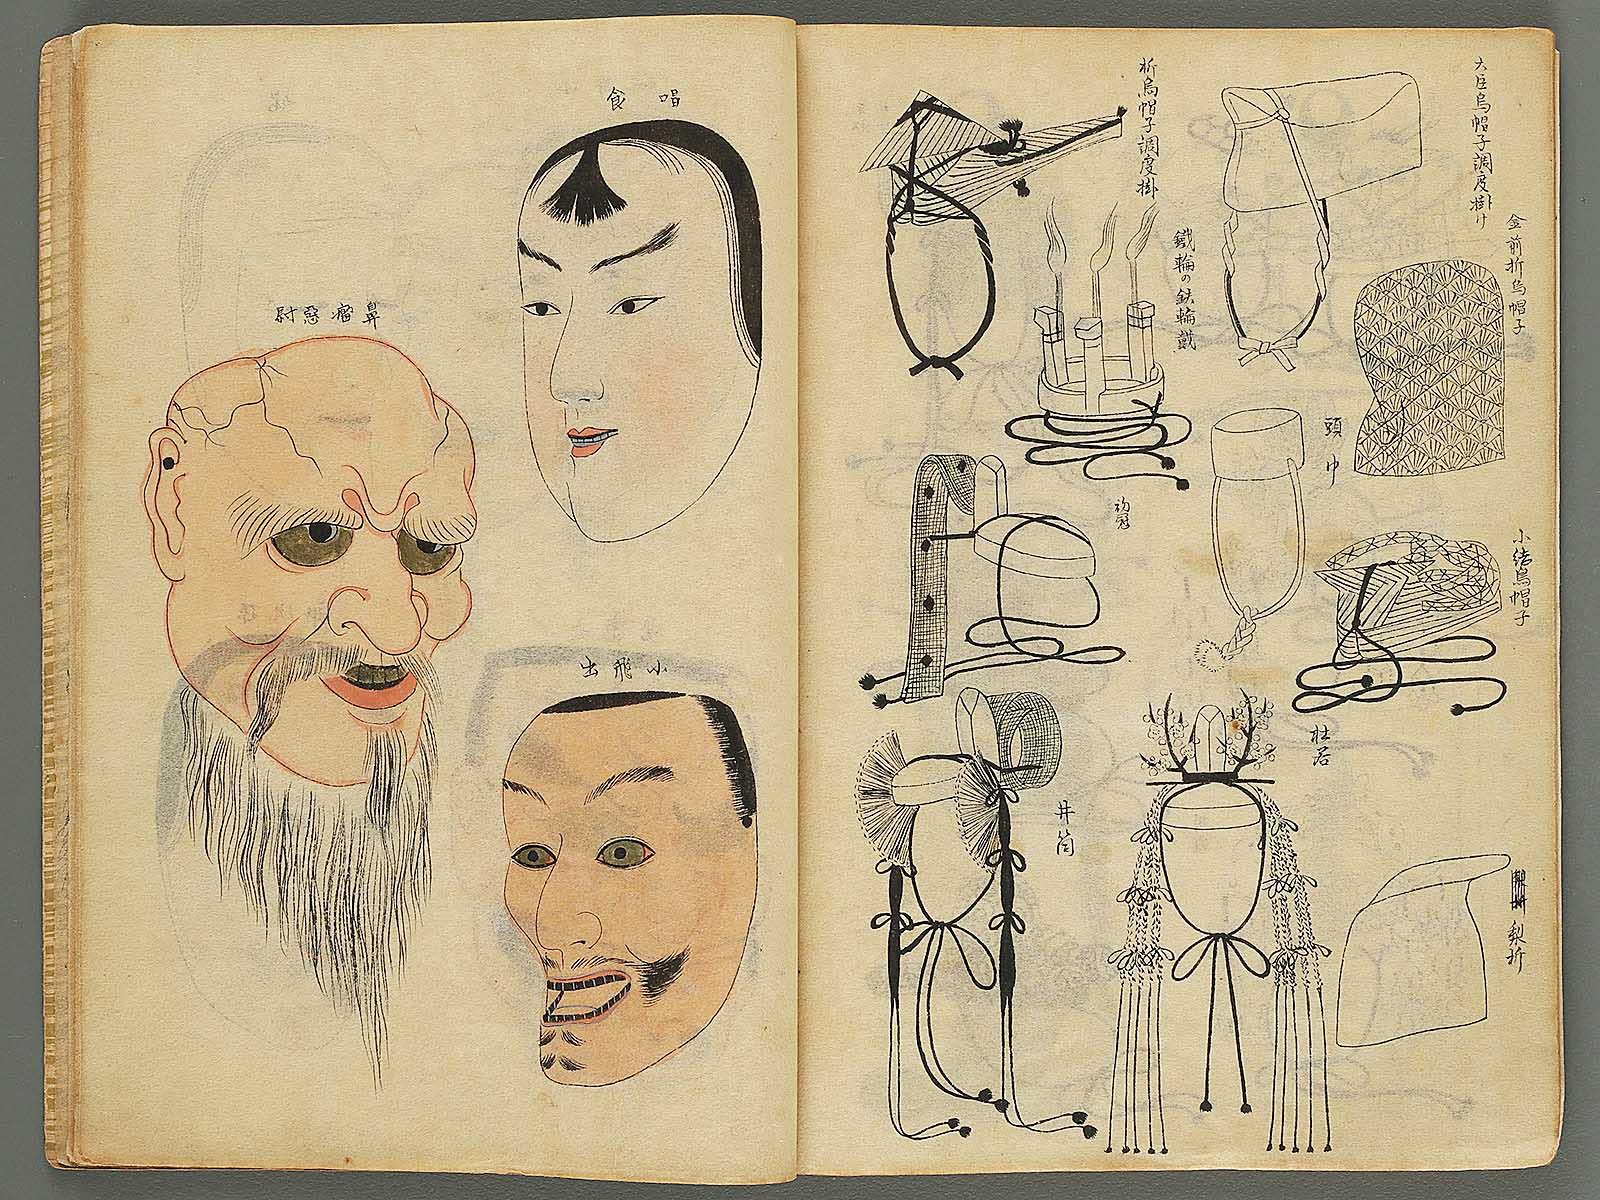 大臣烏帽子調度掛け
金前折烏帽子
小結烏帽子
梨折
頭巾
杜若
折烏帽子調度掛
鐵輪の鉄輪戴
初冠
井筒
喝食
小飛出
鼻瘤惡尉